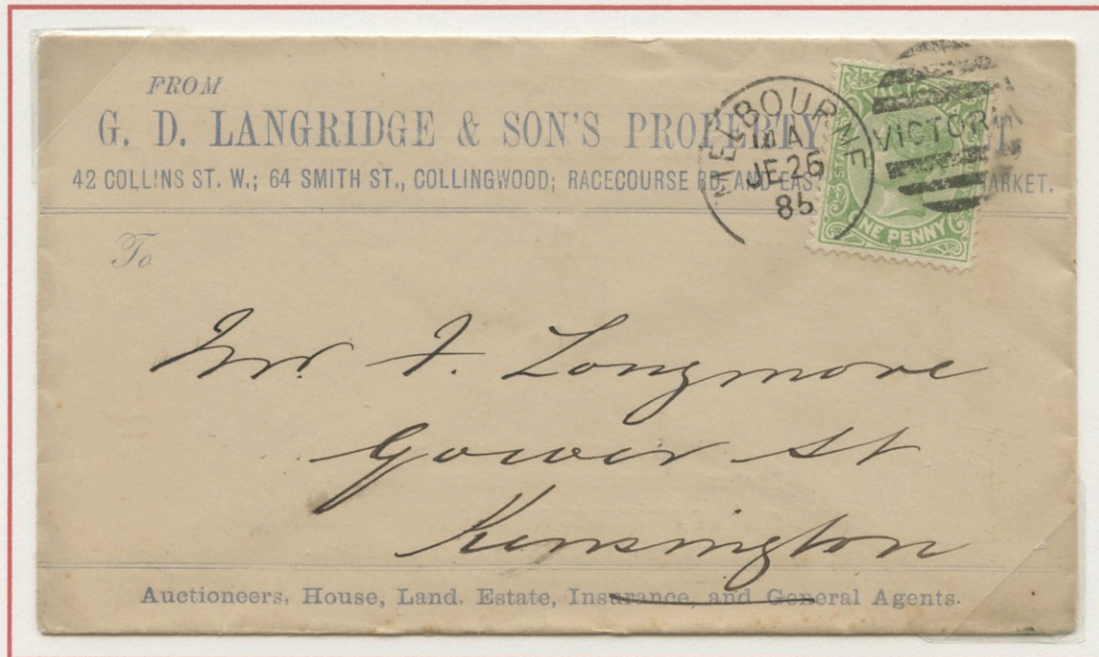 FROM
G. D. LANGRIDGE & SON'S PROPERTY
42 COLLINS ST. W.; 64 SMITH ST., COLLINGWOOD; RACECOURSE RD. AND EAS MARKET.
MELBOURNE
JE 26
VICTOR
NE PENNY
To
Mr. F. Longmore
Gower St
Kensington
Auctioneers, House, Land, Estate, Insurance, and General Agents.